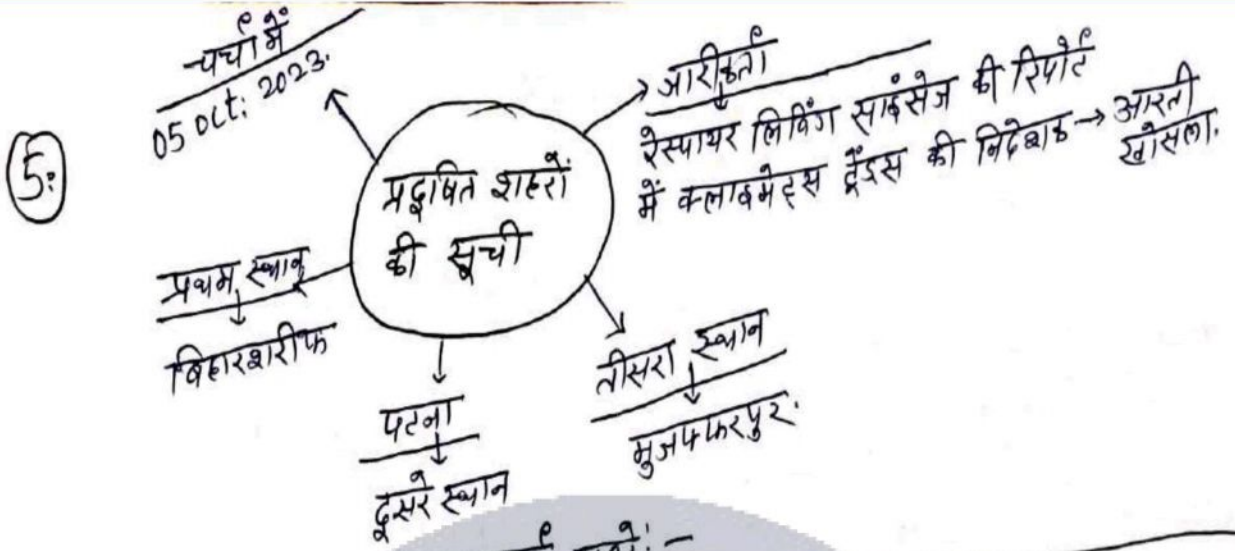 चर्चा में
05 Oct: 2023.
5:
प्रदूषित शहरों
की सूची
जारीकर्ता
रेस्पायर लिविंग साइंसेज की रिपोर्ट
में क्लाइमेट्स ट्रेंड्स की निदेशक → आरती
खोसला.
प्रथम स्थान
बिहारशरीफ
पटना
दूसरे स्थान
तीसरा स्थान
मुजफ्फरपुर.